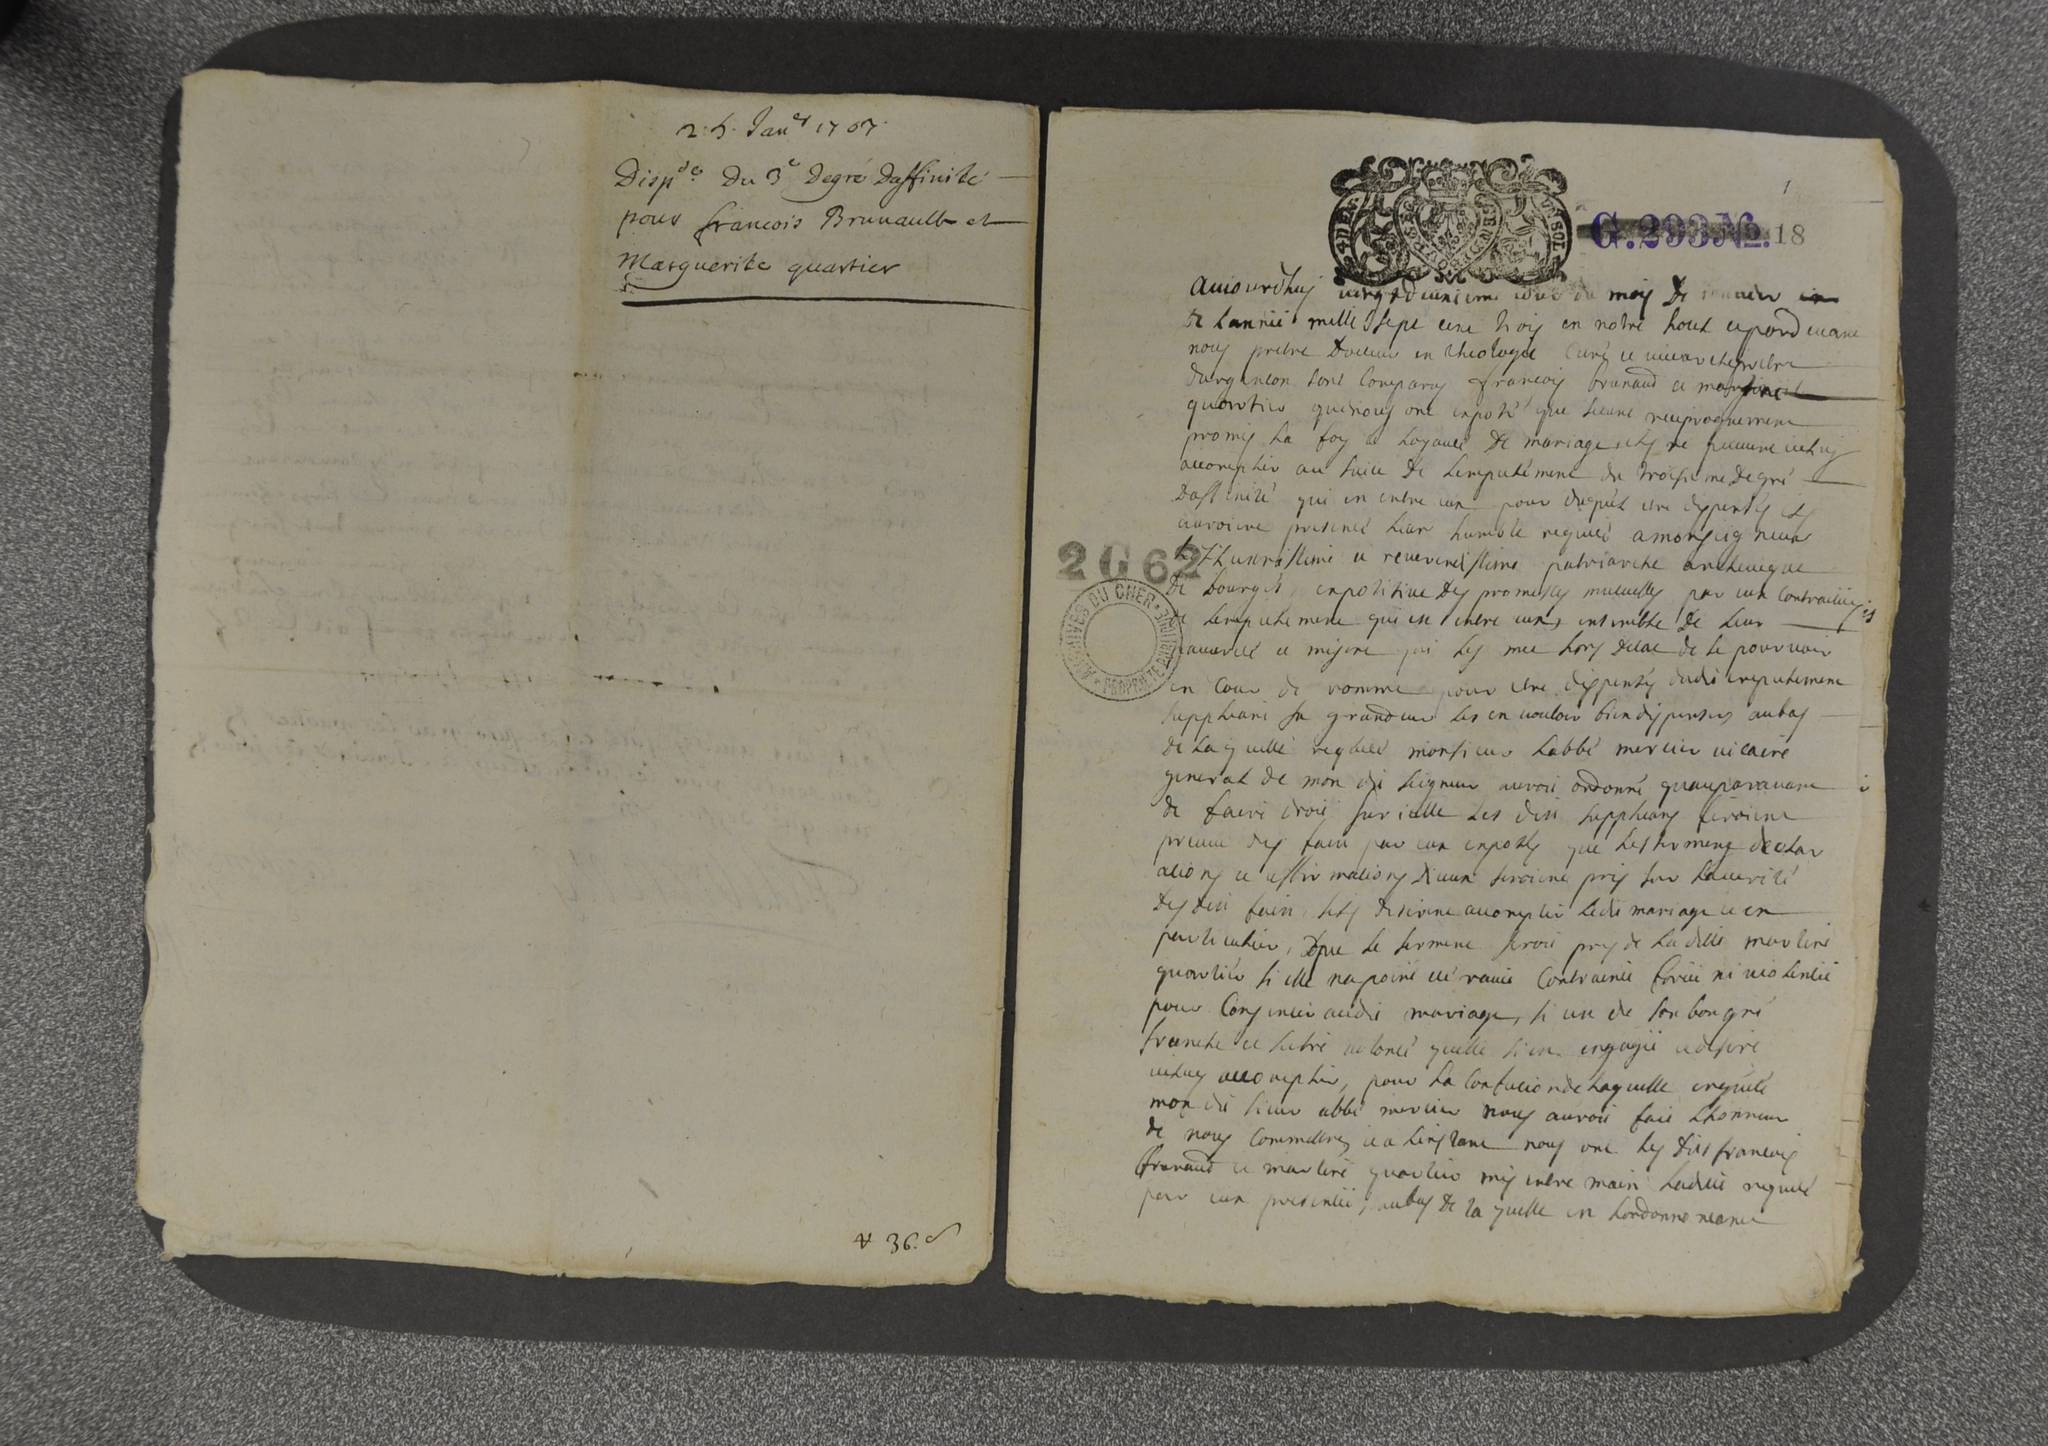 25. Janer 1707.
Dispce Du 3e Degré Daffinité
pour francois Brunault et
Marguerite quartier
# 36.
1
4 DEN. UN SOL
G. 293 No. 18
2 G 62
ARCHIVES DU CHER * PROPRIETE PUBLIQUE *
aujourdhuy vingt du moy De
de lannée mille sept cent trois en notre hotel
nous pretre docteur en theologie curé et vicear
dargenton sont comparuz francois brunaud et
quartier quinous ont exposé que sieant reciproquement
promis la foy et loyauté de mariage ils ne peuvent icelui
accomplir au suiet de lempechement du troisieme degré
daffinité qui est entre eux pour duquel etre dispensés ils
auroient presenté leur humble requeté amonseigneur
L'Illustrissime et reverendissime patriarche archeveque
de bourges, expositive des promesses mutuelles par eux
de lempechement qui est entre eux, ensemble de leur
pauvreté et misere qui les met hors detat de se pourvoir
en cour de romme pour etre dispensés dudit empechement
suppliant sa grandeur les en vouloir bien dispenser aubas
de laquelle requeté monsieur labbé mercier vicaire
general de mon dit seigneur auroit ordonné quauparavant
de faire droit sur icelle les dits supplians feroient
preuve des faits par eux exposés que les serments declar
ations et affirmations deux seroient pris sur la verité
des dits faits sils desirent accomplir ledit mariage et en
particulier, que le serment seroit pris de ladite martine
quartier si elle napoint eté ravie contrainte forcée ni violentée
pour consentir audit mariage, si cest de son bon gré
franche et libre volonté quelle sien engagée adesire
icelui accomplir, pour la confection de laquelle enqueté
mon dit sieur abbé mercier nous auroit fait lhonneur
de nous commettre, et a linstant nous ont les dits francois
brunaud et martine quartier mis entre main ladite requeté
par eux presentée, aubas de laquelle est lordonnance